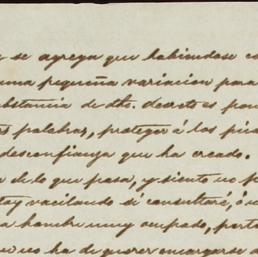 y se agrega que habiendose co
una pequeña variacion para
ubstancia de dho. decreto es pon
palabras, proteger á los pica
desconfianza que ha creado.
a de lo que pasa, y siento no p
toy vacilando si consultaré, ó
a hombre muy ocupado, porto
no ha de querer encargarse d